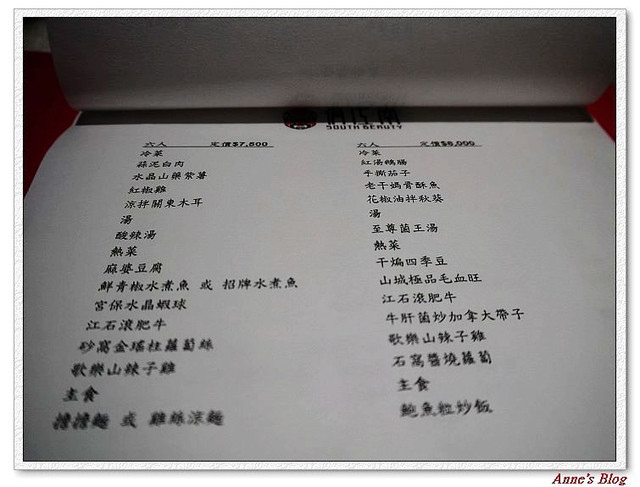 俏江南
SOUTH BEAUTY
六人 定價$7,600
冷菜
蒜泥白肉
水晶山藥紫薯
紅椒雞
涼拌關東木耳
湯
酸辣湯
熱菜
麻婆豆腐
鮮青椒水煮魚 或 招牌水煮魚
宮保水晶蝦球
江石滾肥牛
砂窩金瑤柱蘿蔔絲
歌樂山辣子雞
主食
擔擔麵 或 雞絲涼麵
六人 定價$8,000
冷菜
紅湯鵝腸
手撕茄子
老干媽骨酥魚
花椒油拌秋葵
湯
至尊菌王湯
熱菜
干煸四季豆
山城極品毛血旺
江石滾肥牛
牛肝菌炒加拿大帶子
歌樂山辣子雞
石窩醬燒蘿蔔
主食
鮑魚粒炒飯
Anne's Blog